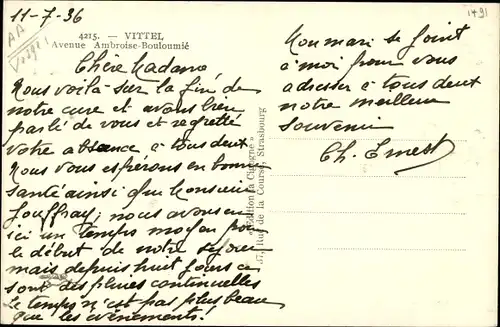 11-7-36
1491
4215. — VITTEL
Avenue Ambroise-Bouloumié
Chère Madame
Nous voilà sur la fin de
notre cure et avons bien
parlé de vous et regretté
votre absence à tous deux
Nous vous espérons en bonne
santé ainsi que Monsieur
Jouffray; nous avons eu
ici un temps moyen pour
le début de notre séjour
mais depuis huit jours ce
sont des pluies continuelles
Le temps n'est pas plus beau
que les évènements!
Mon mari se joint
à moi pour vous
adresser à tous deux
notre meilleur
souvenir
Ch. Ernest
"Edition la Cigogne"
37, Rue de la Course, Strasbourg